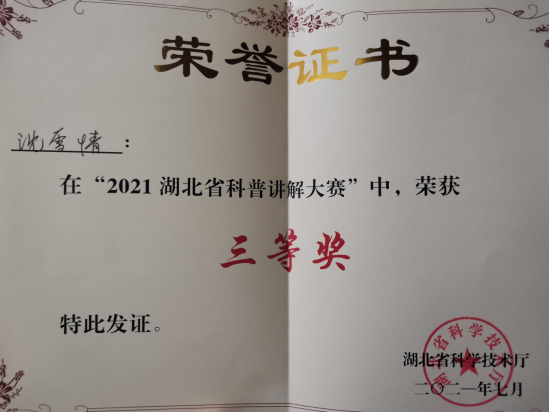 荣誉证书
沈雪情：
在“2021湖北省科普讲解大赛”中，荣获
三等奖
特此发证。
湖北省科学技术厅
二〇二一年七月
湖北省科学技术厅